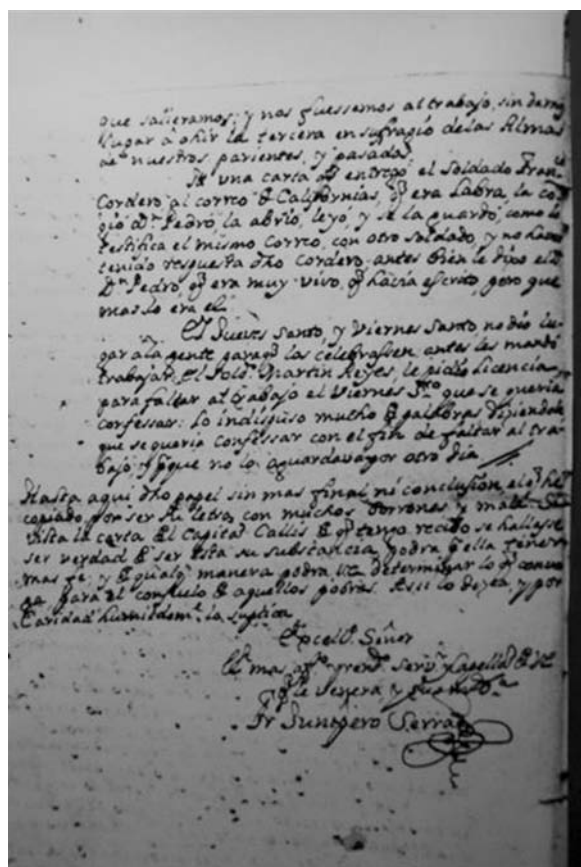 que salieramos; y nos fuessemos al trabajo, sin darnos
lugar à ohir la tercera en sufragio de las Almas
de nuestros parientes, y pasados
una carta q entregò el Soldado Fran.co
Cordero al correo de Californias, q era Labra, la co
gio d.n Pedro, la abrio, leyò, y se la guardò, como lo
testifica el mismo Correo, con otro soldado, y no ha
tenido respuesta dho Cordero, antes bien le dixo el
D.n Pedro, q era muy vivo, q havia escrito, pero que
mas lo era el.
El Jueves Santo, y Viernes Santo, no dio lu
gar a la gente para q las celebrassen, antes les mandò
trabajar. El Sold. Martin Reyes, le pidiò licencia
para faltar al trabajo el Viernes S.to que se queria
confessar: lo indispuso mucho de palabras diziendole
que se queria confessar con el fin de faltar al tra
bajo, y que no lo aguardava por otro dia
Hasta aqui dho papel sin mas final ni conclusion, el q he
copiado por ser letra, con muchos borrones y mala. Si
vista la carta del Capitan Callis de q tengo recibo se hallasse
ser verdad de ser esta su substancia podra ella tener
mas fe; y de qualq manera podra determinar lo q conven
ga, para el consuelo de aquellos pobres. Assi lo desea, y por
Caridad humildem.te la suplica
Excell. Señor
mas af.to serv. y Capellan de
q le venera y
Fr Junipero Serra